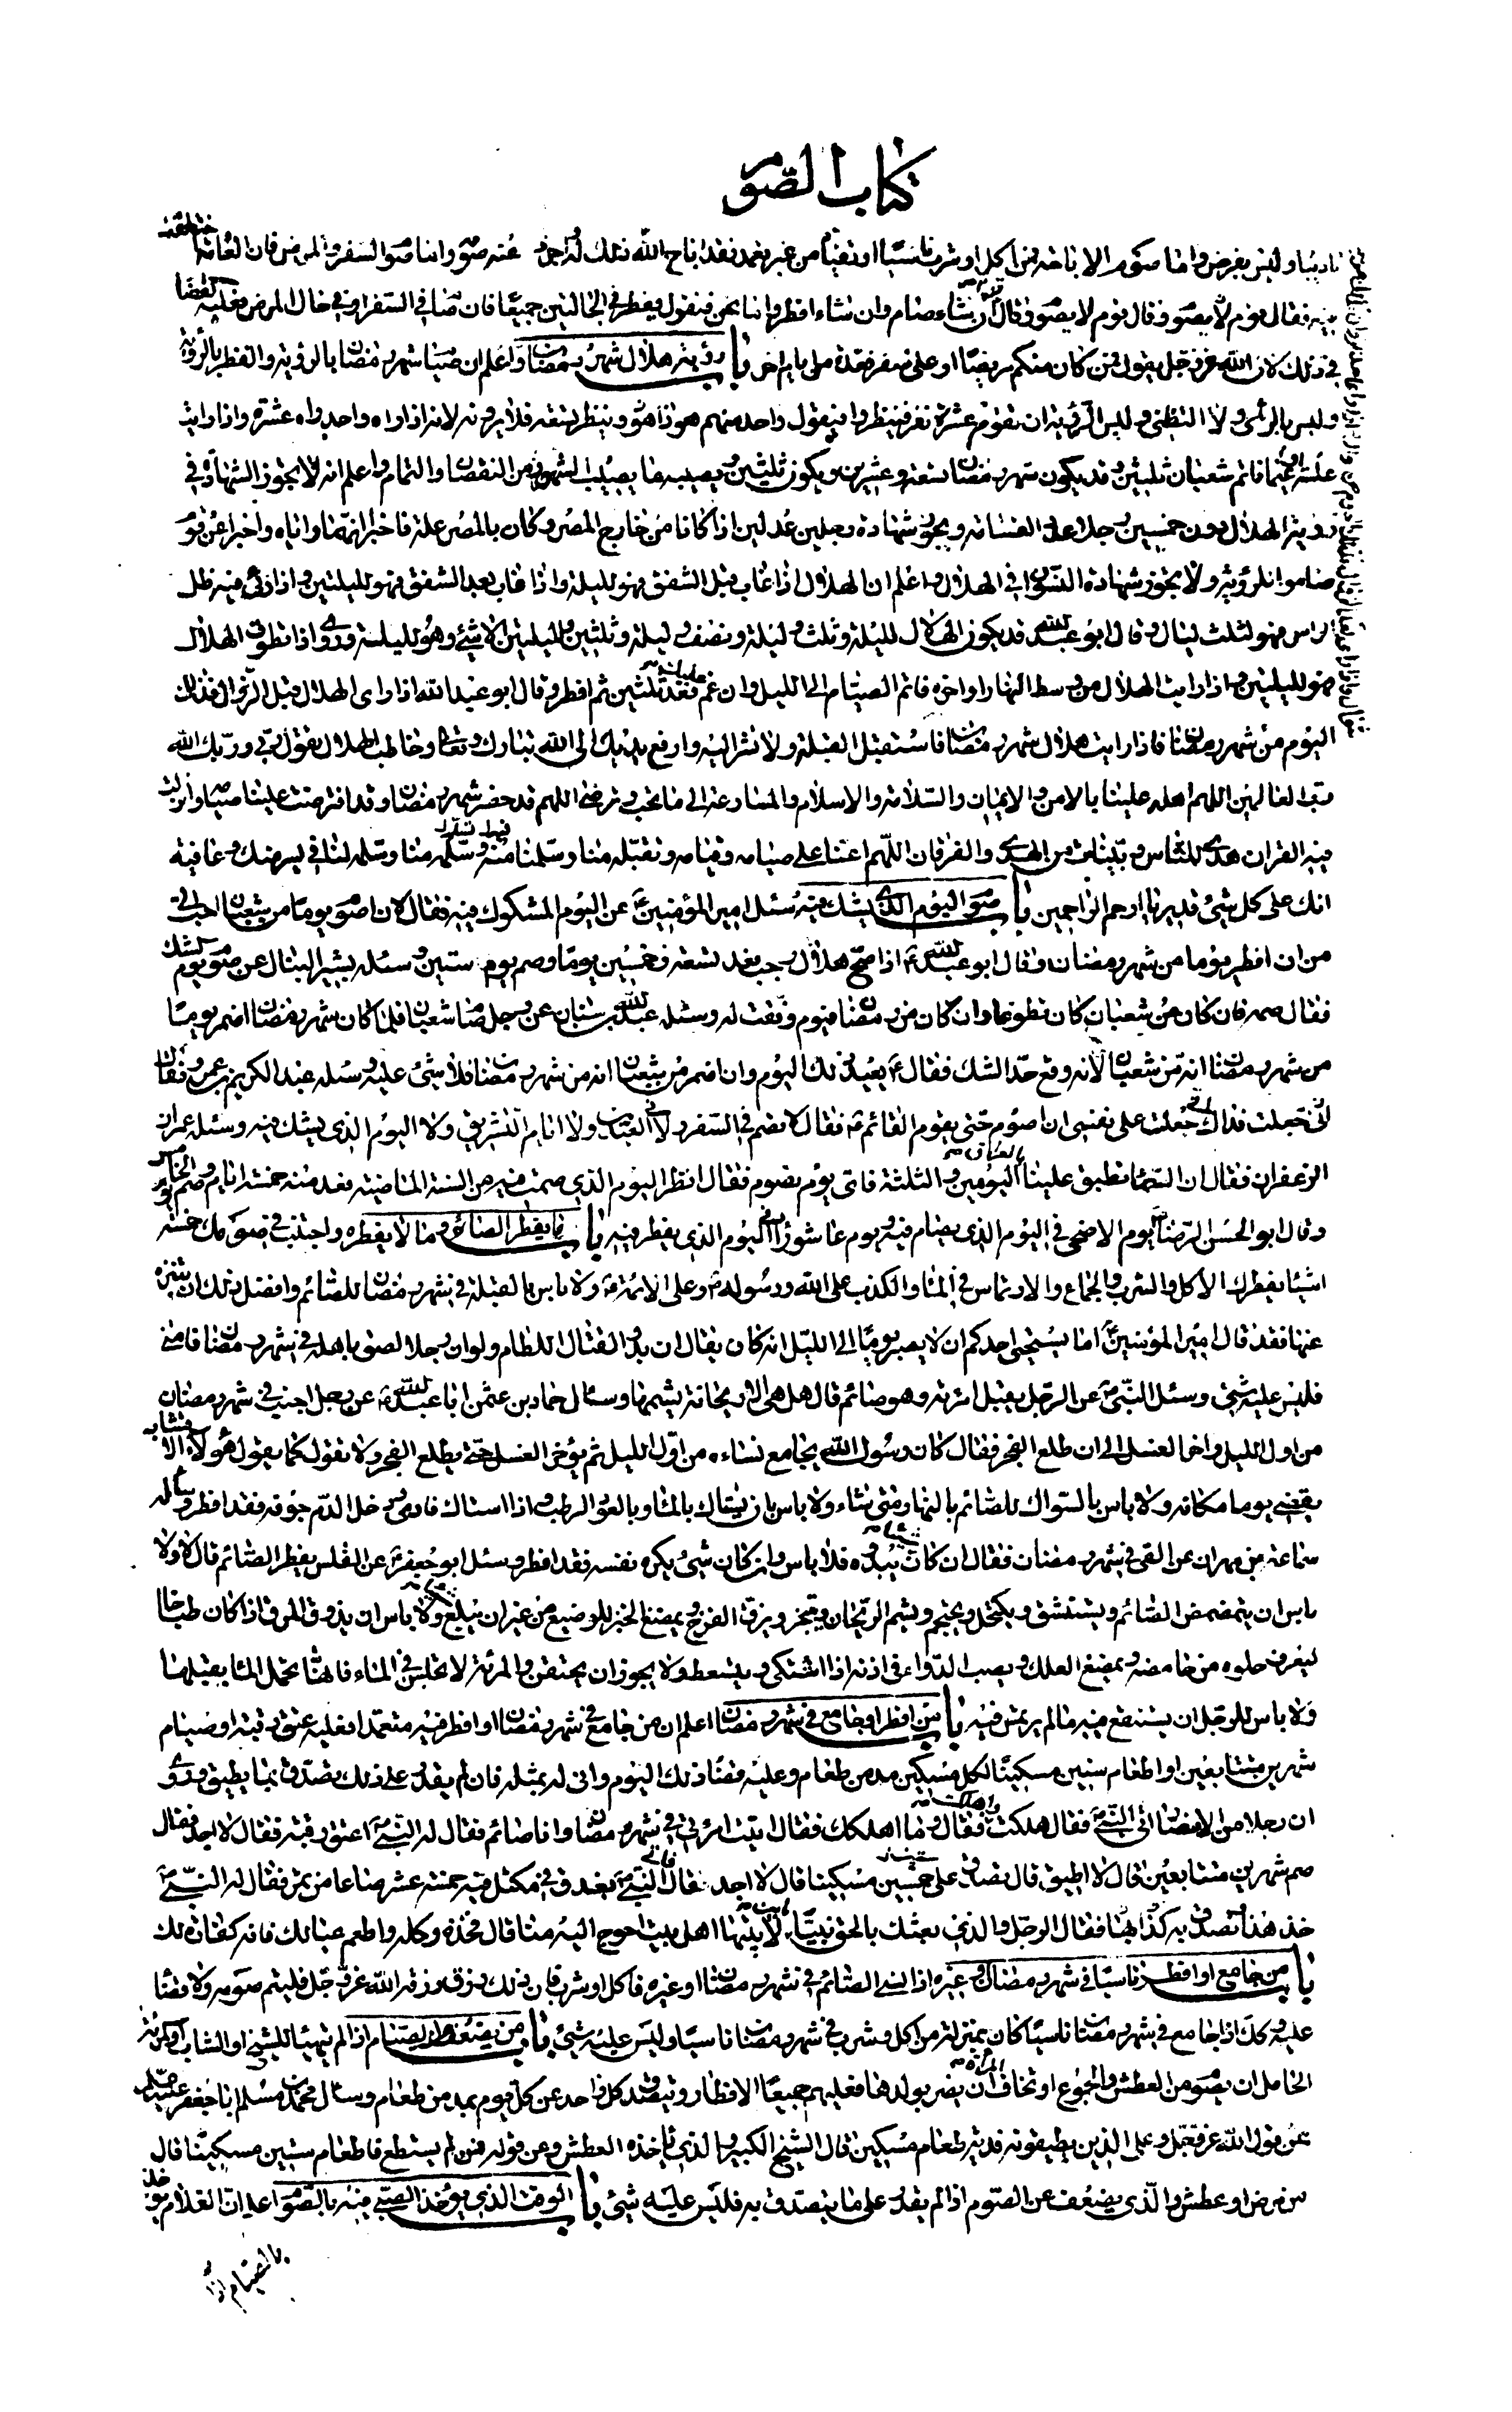 كتاب الصوم
تاديبا وليس بفرض واما صوم الاباحة فمن اكل او شرب ناسيا او تقيأ من غير تعمد فقد اباح الله ذلك له واجزأ عنه صومه واما صوم السفر والمرض فان العامة اختلفت
فيه فقال قوم لا يصوم وقال قوم لا يصوم وقال قوم ان شاء صام وان شاء افطر واما نحن فنقول يفطر في الحالتين جميعا فان صام في السفر او في حال المرض فعليه القضاء
في ذلك لان الله عز وجل يقول فمن كان منكم مريضا او على سفر فعدة من ايام اخر باب رؤية هلال شهر رمضان واعلم ان صيام شهر رمضان بالرؤية والفطر بالرؤية
وليس بالرأي ولا التظني وليس الرؤية ان يقوم عشرة نفر فينظروا فيقول واحد منهم هوذا هو وينظر تسعة فلا يرونه لانه اذا راه واحد راه عشرة واذا رايت
علة او غيما فاتم شعبان ثلثين وقد يكون شهر رمضان تسعة وعشرين ويكون ثلثين ويصيبه ما يصيب الشهور من النقصان والتمام واعلم انه لا يجوز الشهادة في
رؤية الهلال دون خمسين رجلا عدد القسامة ويجوز شهادة رجلين عدلين اذا كانا من خارج المصر وكان بالمصر علة فاخبرا انهما راياه واخبرا عن قوم
صاموا للرؤية ولا تجوز شهادة النسوان في الهلال واعلم ان الهلال اذا غاب قبل الشفق فهو لليلة واذا غاب بعد الشفق فهو لليلتين واذا رئي فيه ظل
الراس فهو لثلث ليال وقال ابو عبد الله قد يكون الهلال لليلة وثلث وليلة ونصف وليلة وثلثين ولليلتين الا شئ وهو لليلة وروي واذا تطوق الهلال
فهو لليلتين واذا رايت الهلال من وسط النهار او اخره فاتم الصيام الى الليل وان غم عليك فعد ثلثين ثم افطر وقال ابو عبد الله اذا راى الهلال قبل الزوال فذلك
اليوم من شهر رمضان فاذا رايت هلال شهر رمضان فاستقبل القبلة ولا تشر اليه وارفع يديك الى الله تبارك وتعالى وخاطب الهلال تقول ربي وربك الله
رب العالمين اللهم اهله علينا بالامن والايمان والسلامة والاسلام والمسارعة الى ما تحب وترضى اللهم قد حضر شهر رمضان وقد افترضت علينا صيامه وانزلت
فيه القران هدى للناس وبينات من الهدى والفرقان اللهم اعنا على صيامه وقيامه وتقبله منا وسلمنا فيه وسلمه منا وسلمه لنا في يسر منك وعافية
انك على كل شئ قدير يا ارحم الراحمين باب صوم اليوم الذي يشك فيه سئل امير المؤمنين عن اليوم المشكوك فيه فقال لان اصوم يوما من شعبان احب الي
من ان افطر يوما من شهر رمضان وقال ابو عبد الله اذا صح هلال رجب فعد تسعة وخمسين يوما وصم يوم ستين وسئله بشير النبال عن صوم يوم الشك
فقال صمه فان كان من شعبان كان تطوعا وان كان من رمضان فيوم وفقت له وسئله عبد الله بن سنان عن رجل صام شعبان فلما كان شهر رمضان اضمر يوما
من شهر رمضان انه من شعبان لانه وقع حد الشك فقال يعيد ذلك اليوم وان اضمر من شعبان انه من شهر رمضان فلا شئ عليه وسئله عبد الكريم بن عمرو فقال
له جعلت فداك اني جعلت على نفسي ان اصوم حتى يقوم القائم فقال لا تصم في السفر ولا في العيدين ولا ايام التشريق ولا اليوم الذي يشك فيه وسئله عمران
الزعفران فقال ان السماء تطبق علينا بالعراق اليومين والثلثة فاي يوم نصوم فقال انظر اليوم الذي صمت فيه من السنة الماضية فعد منه خمسة ايام وصم يوم الخامس
وقال ابو الحسن الرضا يوم الاضحى في اليوم الذي يصام فيه ويوم عاشورا في اليوم الذي يفطر فيه باب ما يفطر الصائم وما لا يفطره واجتنب في صومك خمسة
اشياء يفطرك الاكل والشرب والجماع والارتماس في الماء والكذب على الله ورسوله وعلى الائمة ولا باس بالقبلة في شهر رمضان للصائم وافضل ذلك ان يتنزه
عنها فقد قال امير المؤمنين اما يستحيي احدكم ان لا يصبر يوما الى الليل انه كان يقال ان بدو القتال اللطام ولو ان رجلا لصق باهله في شهر رمضان فامنى
فليس عليه شئ وسئل النبي عن الرجل يقبل امرته وهو صائم قال هل هي الا ريحانة يشمها وسئل حماد بن عثمن ابا عبد الله عن رجل اجنب في شهر رمضان
من اول الليل واخر الغسل الى ان طلع الفجر فقال كان رسول الله يجامع نساءه من اول الليل ثم يؤخر الغسل حتى يطلع الفجر ولا نقول كما يقول هؤلاء الاقشاب
يقضي يوما مكانه ولا باس بالسواك للصائم بالنهار متى شاء ولا باس بان يستاك بالماء وبالعود الرطب اذا استاك فادمى ودخل الدم جوفه فقد افطر وسأله
سماعة بن مهران عن القئ في شهر رمضان فقال ان كان شئ يبدره فلا باس وان كان شئ يكره نفسه فقد افطر وسئل ابو جعفر عن القلس يفطر الصائم قال لا ولا
باس ان يتمضمض الصائم ويستنشق ويكتحل ويحتجم ويشم الريحان ويتبخر ويزق الفرخ ويمضغ الخبز للرضيع من غير ان يبلع شيئا ولا باس ان يذوق المرق اذا كان طباخا
ليعرف حلوه من حامضه ويمضغ العلك ويصب الدواء في اذنه اذا اشتكى ويتسعط ولا يجوز ان يحتقن والمرئة لا تجلس في الماء فانها تحمل الماء بقبلها
ولا باس للرجل ان يستنقع فيه ما لم يرتمس فيه باب من افطر او جامع في شهر رمضان اعلم ان من جامع في شهر رمضان او افطر فيه متعمدا فعليه عتق رقبة او صيام
شهرين متتابعين او اطعام ستين مسكينا لكل مسكين مد من طعام وعليه قضاء ذلك اليوم وانى له بمثله فان لم يقدر على ذلك تصدق بما يطيق وروي
ان رجلا من الانصار اتى النبي فقال هلكت واهلكت فقال وما اهلكك فقال اتيت امرئتي في شهر رمضان وانا صائم فقال له النبي اعتق رقبة فقال لا اجد فقال
صم شهرين متتابعين قال لا اطيق قال تصدق على ستين مسكينا قال لا اجد فقال فاتى النبي بعذق في مكتل فيه خمسة عشر صاعا من تمر فقال له النبي
خذ هذا فتصدق به فقال الرجل والذي بعثك بالحق نبيا ما بين لابتيها اهل بيت احوج اليه منا قال فخذه وكله واطعم عيالك فانه كفارة لك
باب من جامع او افطر ناسيا في شهر رمضان او غيره اذا نسي الصائم في شهر رمضان او غيره فاكل او شرب فان ذلك رزق رزقه الله عز وجل فليتم صومه ولا قضاء
عليه وكذا اذا جامع في شهر رمضان ناسيا كان بمنزلة من اكل وشرب في شهر رمضان ناسيا وليس عليه شئ باب من يضعف عن الصيام اذا لم يتهيأ للشيخ او الشاب او المرئة
الحامل ان يصوم من العطش والجوع او تخاف المرأة ان يضر بولدها فعليهم جميعا الافطار وتصدق كل واحد عن كل يوم بمد من طعام وسئل محمد بن مسلم ابا جعفر عليه السلم
عن قول الله عز وجل وعلى الذين يطيقونه فدية طعام مسكين قال الشيخ الكبير والذي يأخذه العطش وعن قوله فمن لم يستطع فاطعام ستين مسكينا قال
من مرض او عطش والذي يضعف عن الصوم اذا لم يقدر على ما يتصدق به فليس عليه شئ باب الوقت الذي يؤخذ الصبي فيه بالصوم اعلم ان الغلام يؤخذ
بالصيام اذا